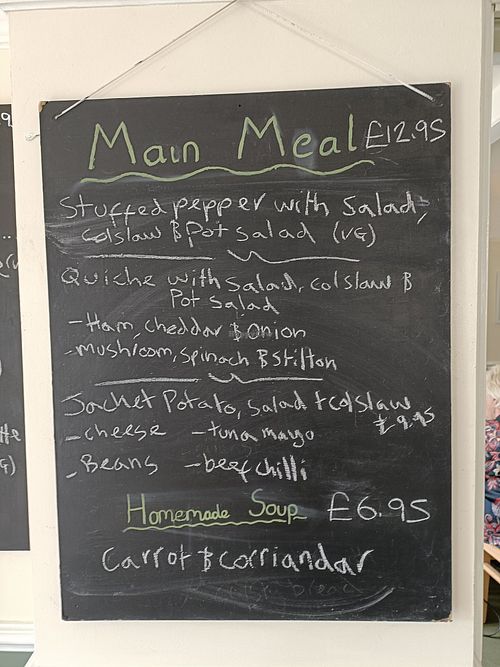 Main Meal £12.95
Stuffed pepper with Salad,
Colslaw & Pot Salad (VG)
Quiche with Salad, colslaw &
Pot Salad
-Ham, cheddar & Onion
-mushroom, spinach & stilton
Jachet Potato, Salad + colslaw
£9.95
-cheese -tuna mayo
-Beans -beef chilli
Homemade Soup £6.95
Carrot & corriandar